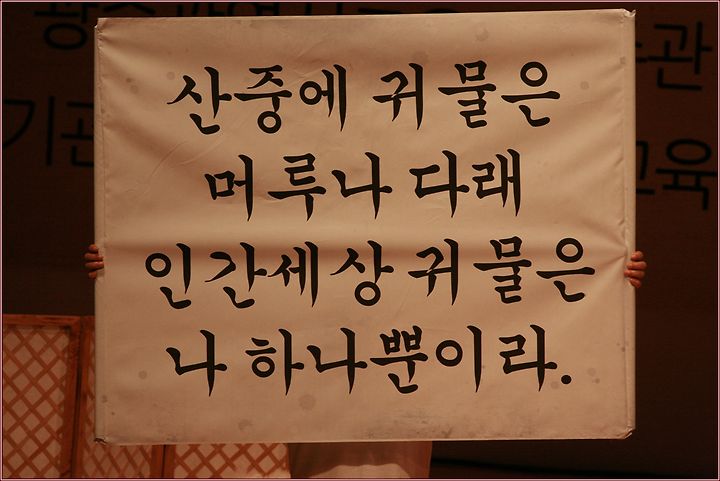 산중에 귀물은
머루나 다래
인간세상 귀물은
나 하나뿐이라.